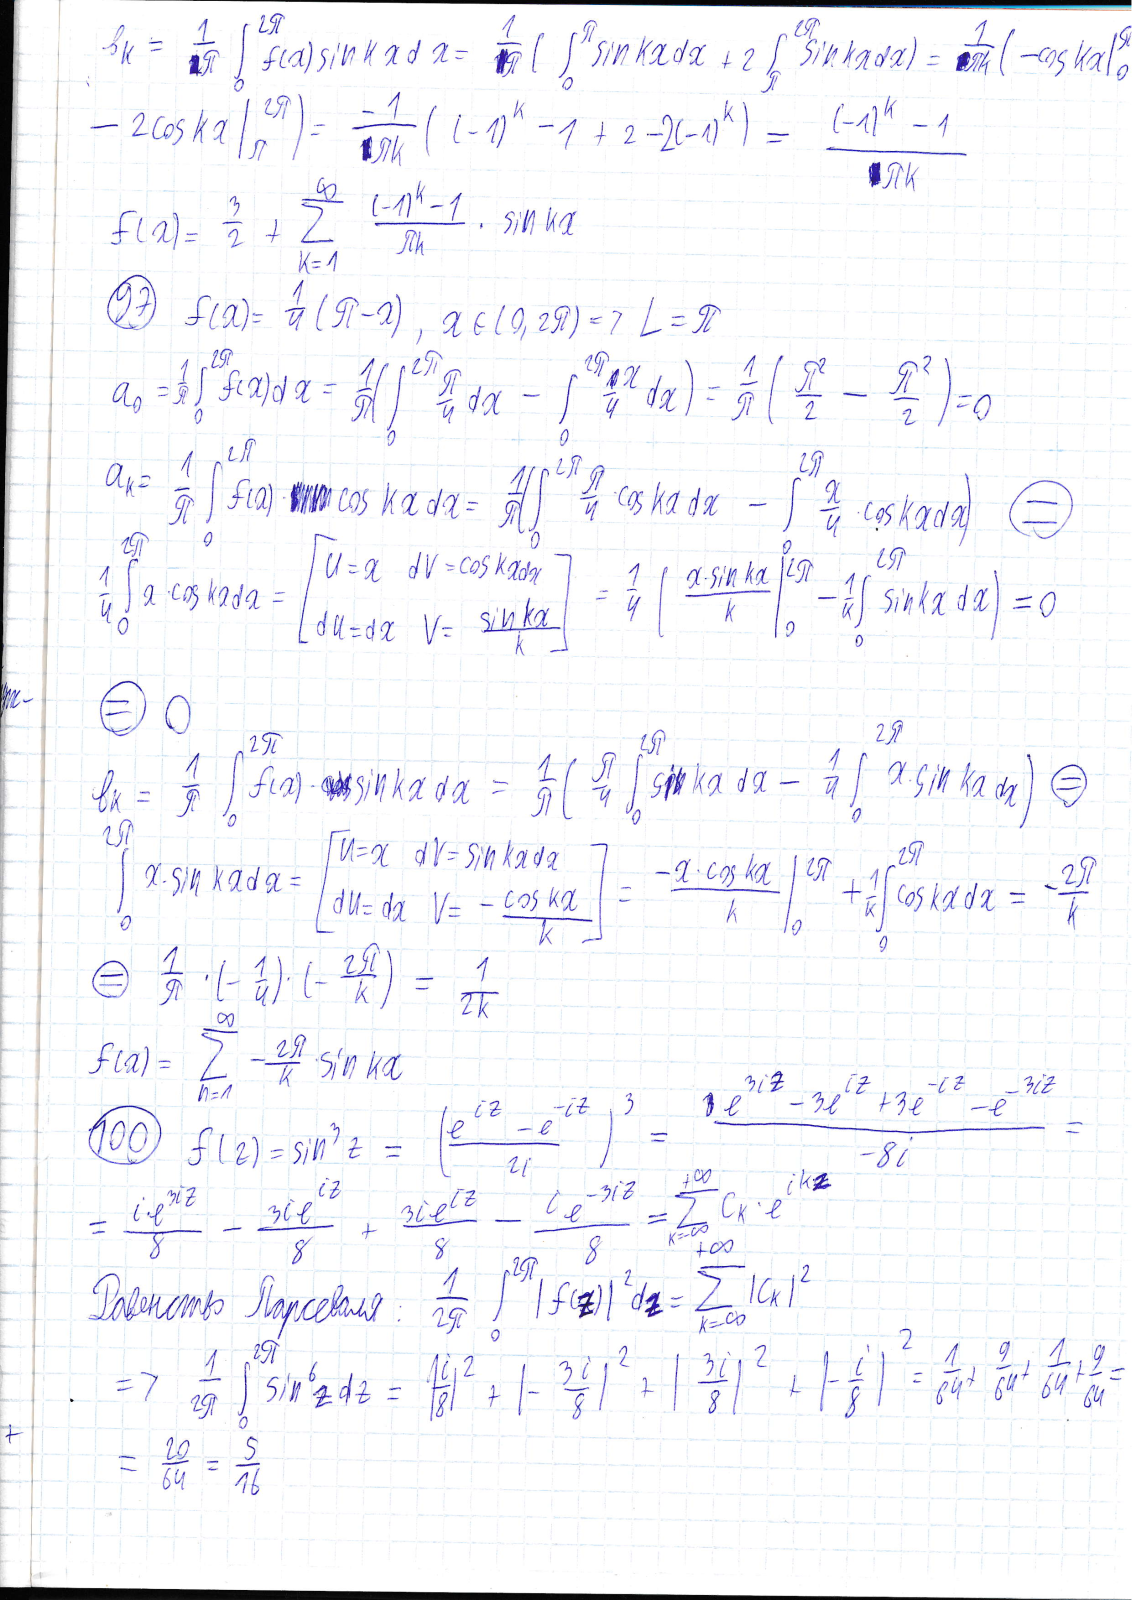 bₖ = 1/π ∫₀^{2π} f(x) sin kx dx = 1/π ( ∫₀^π sin kx dx + 2 ∫_π^{2π} sin kx dx) = 1/πk ( -cos kx|₀^π
- 2cos kx |_π^{2π} ) = -1/πk ( (-1)^k - 1 + 2 - 2(-1)^k ) = ((-1)^k - 1)/πk
f(x) = 3/2 + ∑_{k=1}^∞ ((-1)^k - 1)/πk · sin kx
97 f(x) = 1/4 (π-x), x ∈ (0, 2π) => L = π
a₀ = 1/π ∫₀^{2π} f(x) dx = 1/π ( ∫₀^{2π} π/4 dx - ∫₀^{2π} x/4 dx ) = 1/π ( π²/2 - π²/2 ) = 0
aₖ = 1/π ∫₀^{2π} f(x) · cos kx dx = 1/π ( ∫₀^{2π} π/4 · cos kx dx - ∫₀^{2π} x/4 · cos kx dx ) =
1/4 ∫₀^{2π} x · cos kx dx = [ u = x dV = cos kx dx du = dx V = sin kx/k ] = 1/4 ( x·sin kx/k |₀^{2π} - 1/k ∫₀^{2π} sin kx dx ) = 0
= 0
bₖ = 1/π ∫₀^{2π} f(x) · sin kx dx = 1/π ( π/4 ∫₀^{2π} sin kx dx - 1/4 ∫₀^{2π} x · sin kx dx ) =
∫₀^{2π} x · sin kx dx = [ u = x dV = sin kx dx du = dx V = - cos kx/k ] = -x · cos kx/k |₀^{2π} + 1/k ∫₀^{2π} cos kx dx = - 2π/k
= 1/π · (- 1/4) · (- 2π/k) = 1/2k
f(x) = ∑_{n=1}^∞ - 2π/k · sin kx
100 f(z) = sin³ z = ( (e^{iz} - e^{-iz})/2i )³ = (e^{3iz} - 3e^{iz} + 3e^{-iz} - e^{-3iz})/-8i =
= i·e^{3iz}/8 - 3ie^{iz}/8 + 3ie^{iz}/8 - ie^{-3iz}/8 = ∑_{k=-∞}^{+∞} Cₖ · e^{ikz}
Равенство Парсеваля: 1/2π ∫₀^{2π} |f(z)|² dz = ∑_{k=-∞}^{+∞} |Cₖ|²
=> 1/2π ∫₀^{2π} sin⁶ z dz = |1i/8|² + |- 3i/8|² + |3i/8|² + |- i/8|² = 1/64 + 9/64 + 1/64 + 9/64 =
= 20/64 = 5/16